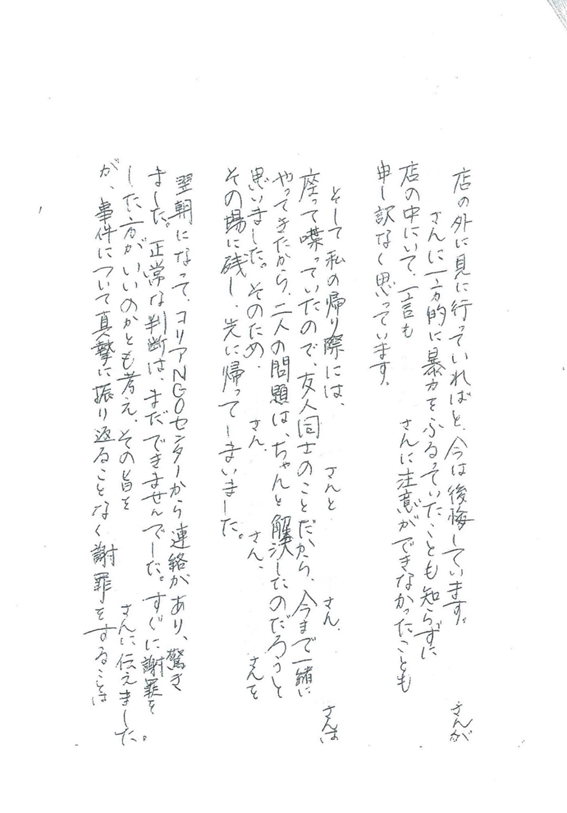 店の外に見に行っていればと、今は後悔しています。 さんが
さんに一方的に暴力をふるっていたことも知らずに
店の中にいて、一言も さんに注意ができなかったことも
申し訳なく思っています。
そして私の帰り際には、 さんと さん、 さんは
座って喋っていたので、友人同士のことだから、今まで一緒に
やってきたから、二人の問題は、ちゃんと解決したのだろうと
思いました。そのため、 さん、 さん、 さんを
その場に残し、先に帰ってしまいました。
翌朝になって、コリアNGOセンターから連絡があり、驚き
ました。正常な判断は、まだできませんでした。すぐに謝罪を
した方がいいのかとも考え、その旨を さんに伝えました。
が、事件について真摯に振り返ることなく謝罪をすることは